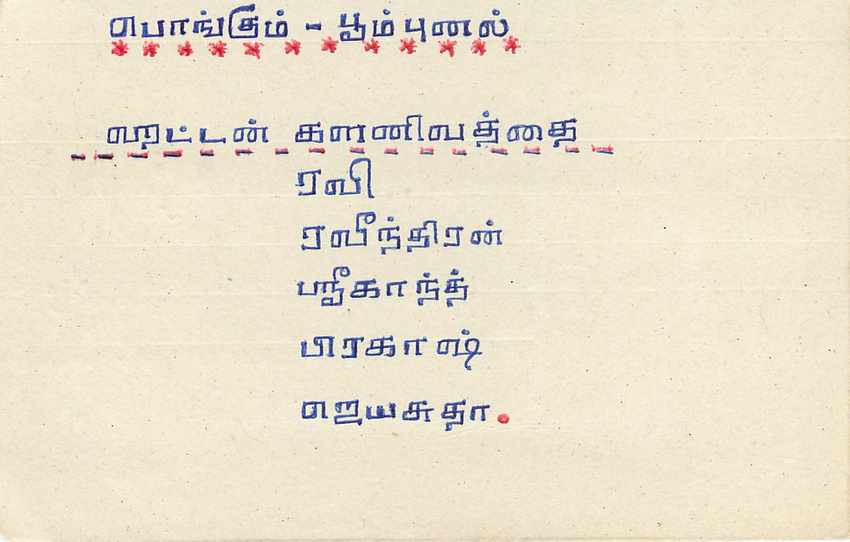 பொங்கும் - பூம்புனல்
ஹட்டன் களனிவத்தை
ரவி
ரவீந்திரன்
ஸ்ரீகாந்த்
பிரகாஷ்
ஜெயசுதா.